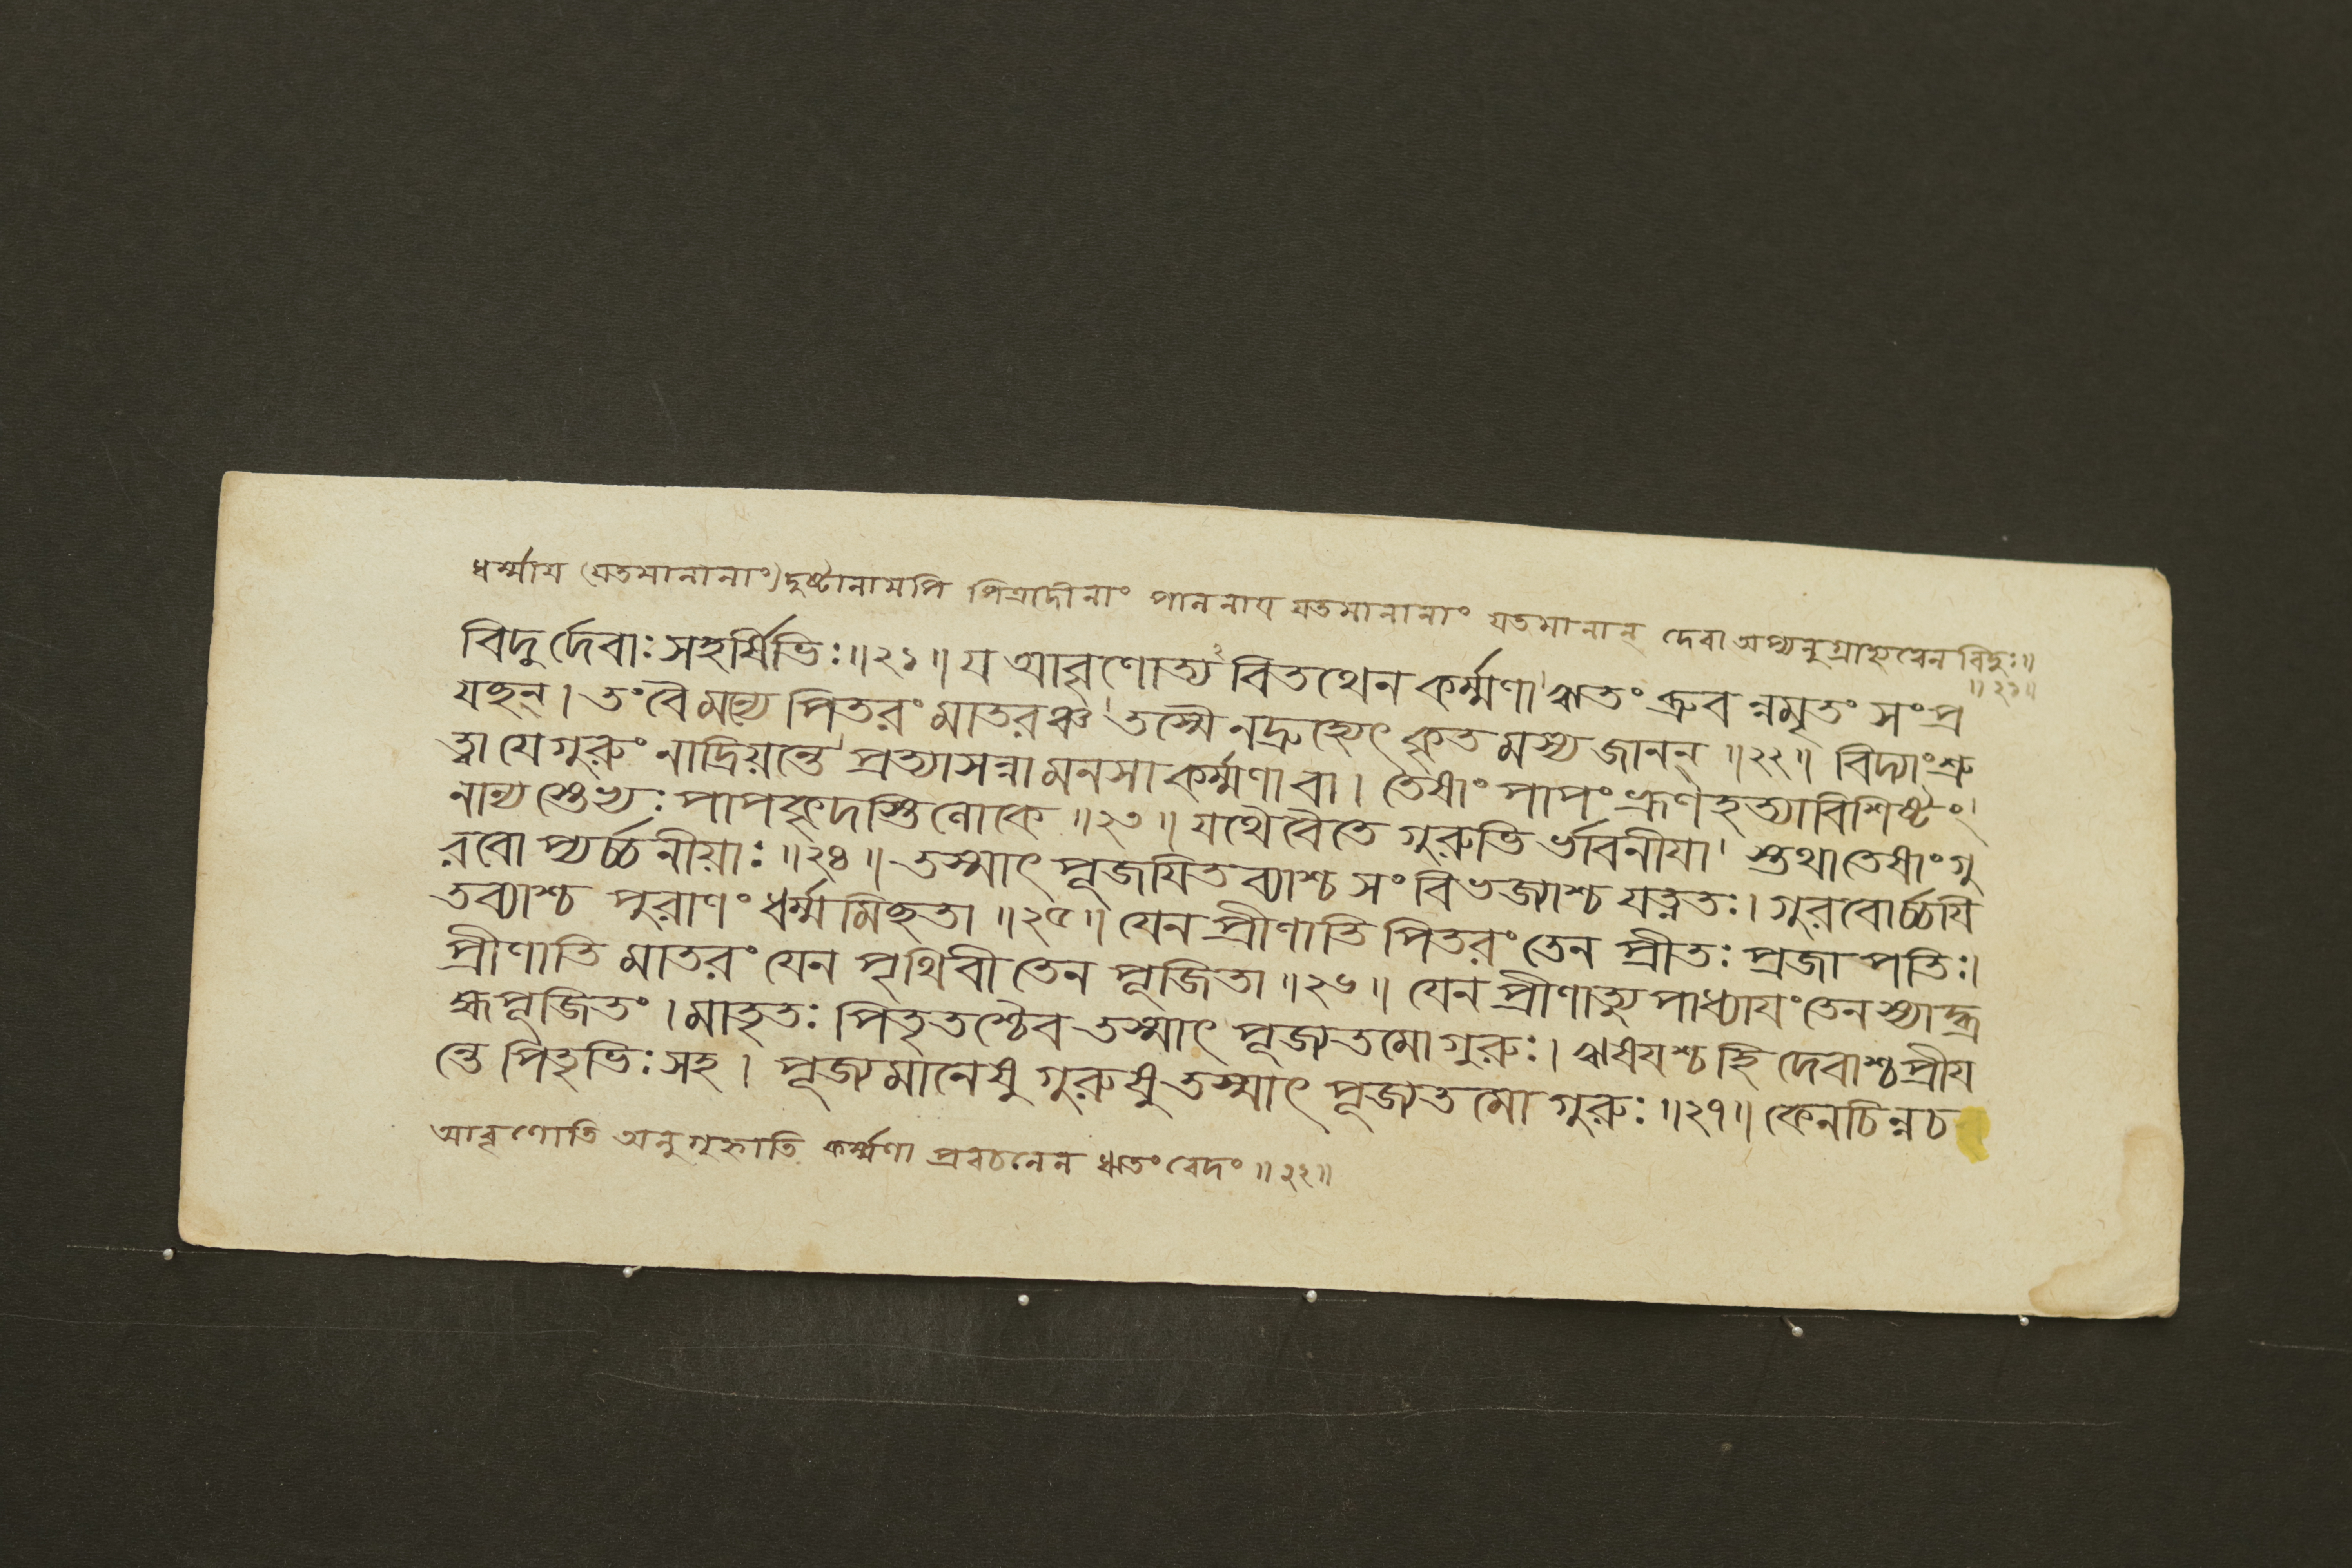 ধর্ম্মায (যতমানানাং) দুষ্টানামপি পিত্রাদীনাং পালনায যতমানানাং যতমানান্ দেবা অপ্যনুগ্রাহ্যত্বেন বিদুঃ॥
॥২১॥
বিদুর্দেবাঃ সহর্ষিভিঃ॥২১॥ য আবৃণোত্য বিতথেন কর্ম্মণা ঋতং ব্রুব ন্নমৃতং সংপ্র
যছন্। তং বৈ মন্যে পিতরং মাতরঞ্চ তস্মৈ নদ্রুহ্যেৎ কৃত মস্য জানন্॥২২॥ বিদ্যাং শ্রু
ত্বা যে গুরুং নাদ্রিয়ন্তে প্রত্যাসন্না মনসা কর্ম্মণা বা। তেষাং পাপং ভ্রূণহত্যাবিশিষ্টং
নান্য স্তেভ্যঃ পাপকৃদস্তি লোকে॥২৩॥ যথৈ বৈতে গুরুভি র্ভাবনীযা স্তথা তেষাং গু
রবো প্যর্চ্চনীয়াঃ॥২৪॥ তস্মাৎ পূজযিতব্যাশ্চ সংবিভজ্যাশ্চ যত্নতঃ। গুরবোর্চ্চযি
তব্যাশ্চ পুরাণং ধর্ম্ম মিছতা॥২৫॥ যেন প্রীণাতি পিতরং তেন প্রীতঃ প্রজাপতিঃ।
প্রীণাতি মাতরং যেন পৃথিবী তেন পূজিতা॥২৬॥ যেন প্রীণাত্যু পাধ্যাযং তেন স্যাদ্ব্র
হ্মপূজিতং। মাতৃতঃ পিতৃতশ্চৈব তস্মাৎ পূজ্যতমো গুরুঃ। ঋষযশ্চ হি দেবাশ্চ প্রীয
ন্তে পিতৃভিঃ সহ। পূজ্যমানেষু গুরুষু তস্মাৎ পূজ্যতমো গুরুঃ॥২৭॥ কেনচিন্নচ
আবৃণোতি অনুগৃহ্নাতি কর্ম্মণা প্রবচনেন ঋতং বেদং॥২২॥